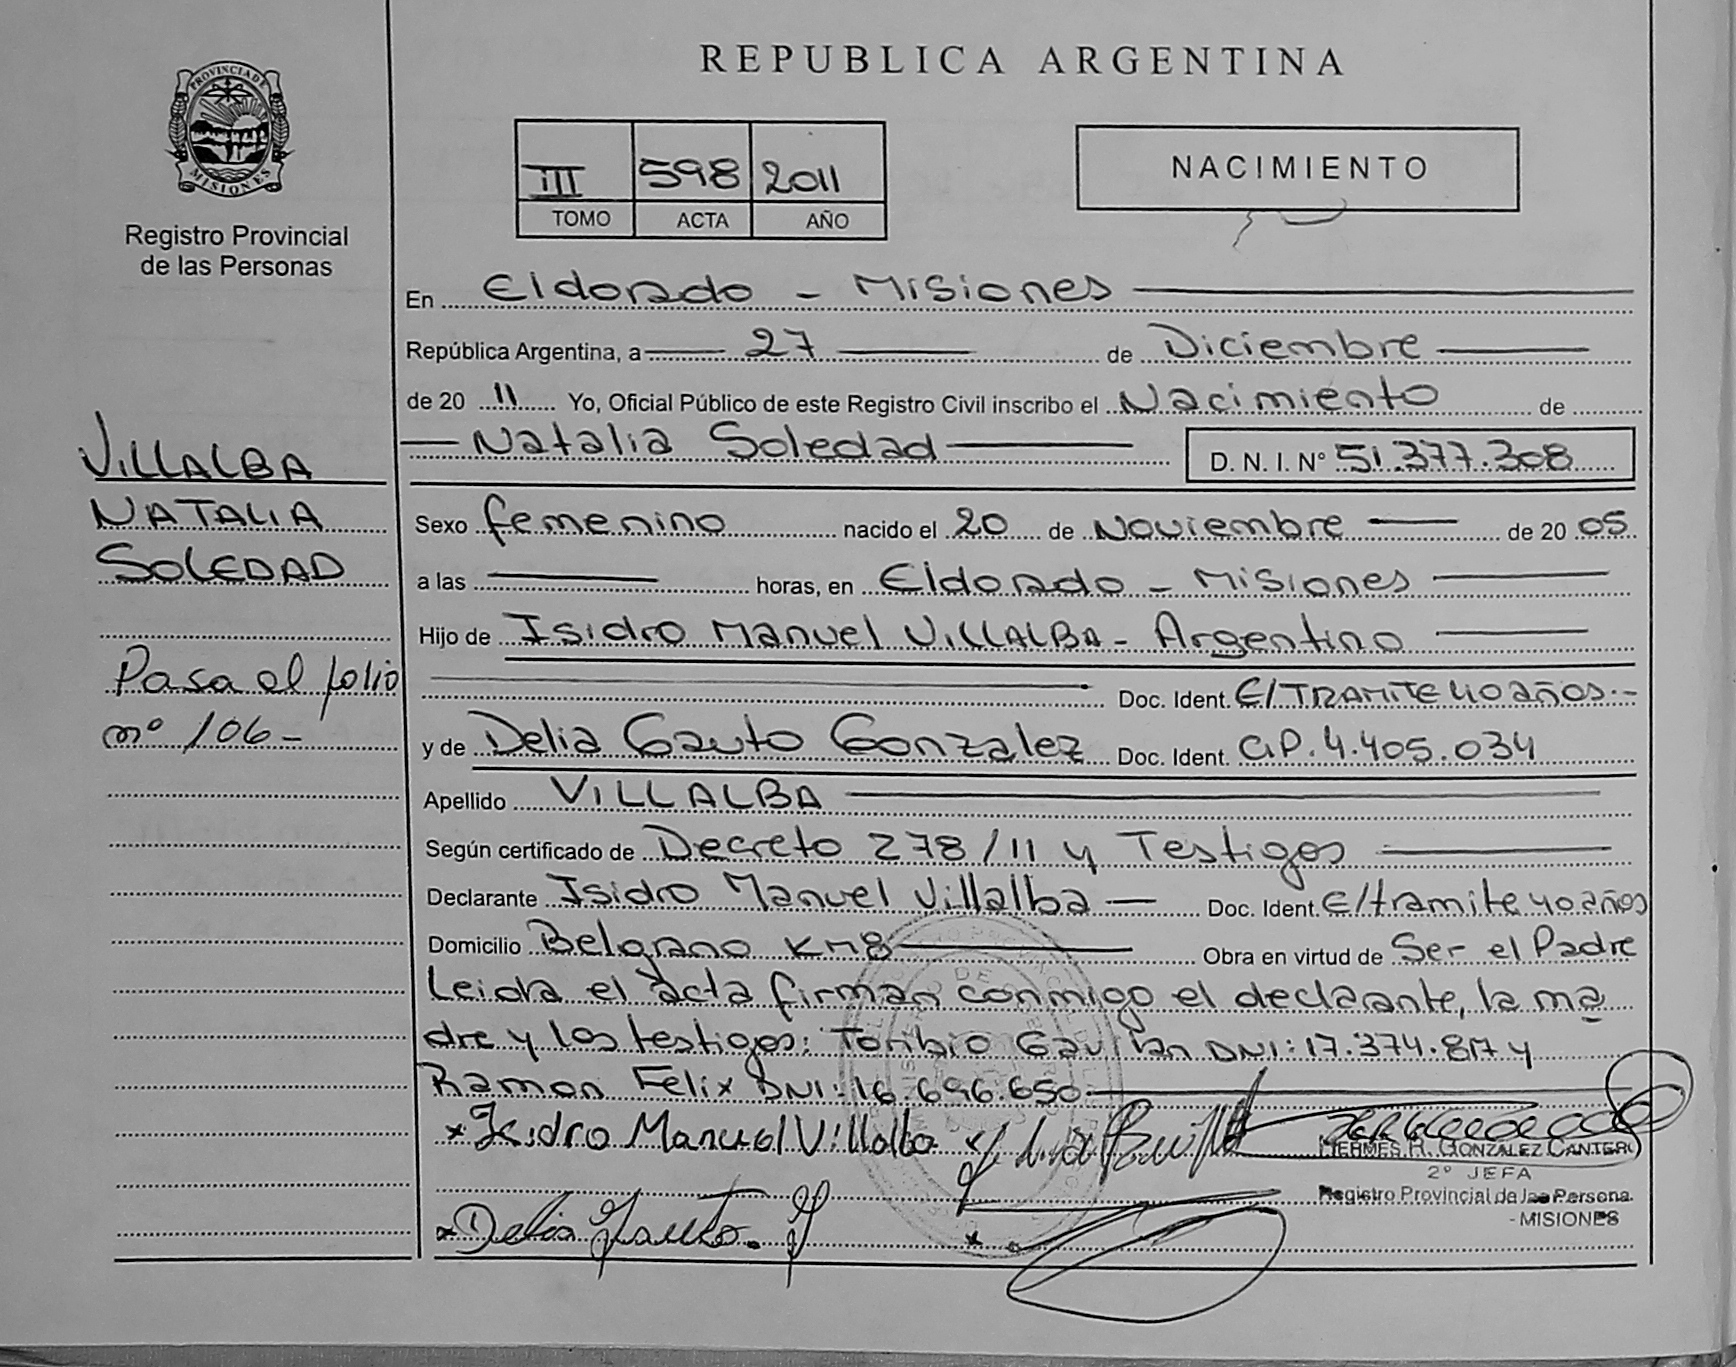 REPUBLICA ARGENTINA
PROVINCIA DE MISIONES
Registro Provincial
de las Personas
III 598 2011
TOMO ACTA AÑO
NACIMIENTO
VILLALBA
NATALIA
SOLEDAD
Pasa al folio
nº 106-
En Eldorado - Misiones
República Argentina, a 27 de Diciembre
de 20 11 Yo, Oficial Público de este Registro Civil inscribo el Nacimiento de
Natalia Soledad D. N. I. N° 51.377.308
Sexo femenino nacido el 20 de Noviembre de 20 05
a las horas, en Eldorado - Misiones
Hijo de Isidro Manuel VILLALBA - Argentino
Doc. Ident. E/TRAMITE 40 años.-
y de Delia Gauto Gonzalez Doc. Ident. C.P. 4.405.034
Apellido VILLALBA
Según certificado de Decreto 278/11 y Testigos
Declarante Isidro Manuel Villalba Doc. Ident. E/tramite 40 años
Domicilio Belgrano KM8 Obra en virtud de Ser el Padre
Leida el acta firman conmigo el declarante, la ma
dre y los testigos: Toribio Gavilan DNI: 17.374.817 y
Ramon Felix DNI: 16.696.650
x Isidro Manuel Villalba x
HERMES R. GONZALEZ CANTERO
2° JEFA
Registro Provincial de las Persona
- MISIONES
x Delia Gauto. G x